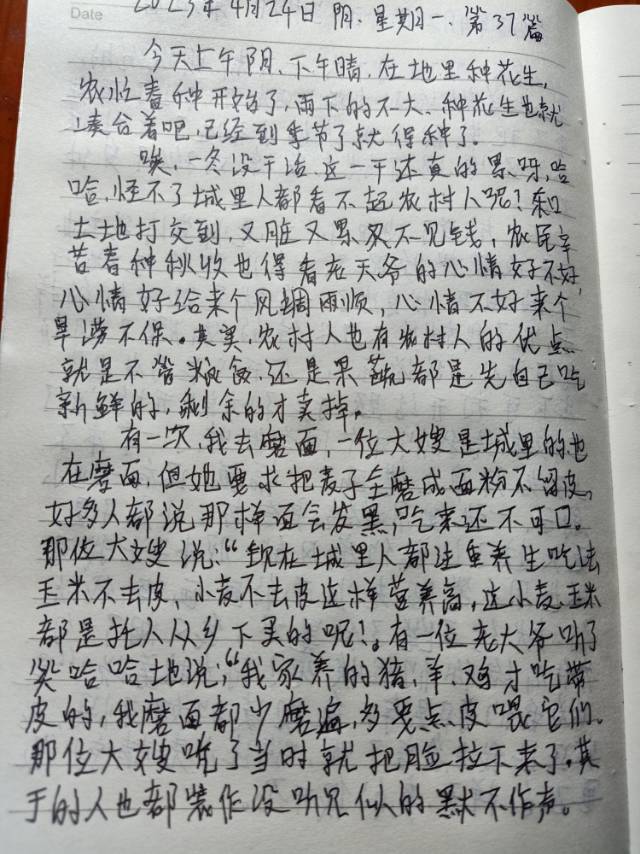 Date
2023年4月24日 阴. 星期一. 第37篇
今天上午阴、下午晴. 在地里种花生,
农忙春种开始了, 雨下的不大、种花生也就
凑合着吧, 已经到季节了就得种了。
唉, 一冬没干活. 这一干还真的累呀, 哈
哈, 怪不了城里人都看不起农村人呢? 和
土地打交到, 又脏又累又不见钱, 农民辛
苦春种秋收也得看老天爷的心情好不好,
心情好给来个风调雨顺, 心情不好来个
旱涝不保。其实, 农村人也有农村人的优点
就是不管粮食. 还是果蔬都是先自己吃
新鲜的, 剩余的才卖掉。
有一次, 我去磨面, 一位大嫂是城里的也
在磨面, 但她要求把麦子全磨成面粉不留皮,
好多人都说那样面会发黑, 吃来还不可口。
那位大嫂说:“现在城里人都注重养生吃法
玉米不去皮, 小麦不去皮这样营养高, 这小麦玉米
都是托人从乡下买的呢!。有一位老大爷听了
笑哈哈地说:“我家养的猪, 羊、鸡才吃带
皮的, 我磨面都少磨遍, 多要点皮喂它们.
那位大嫂听了当时就把脸拉下来了。其
于的人也都装作没听见似的默不作声。